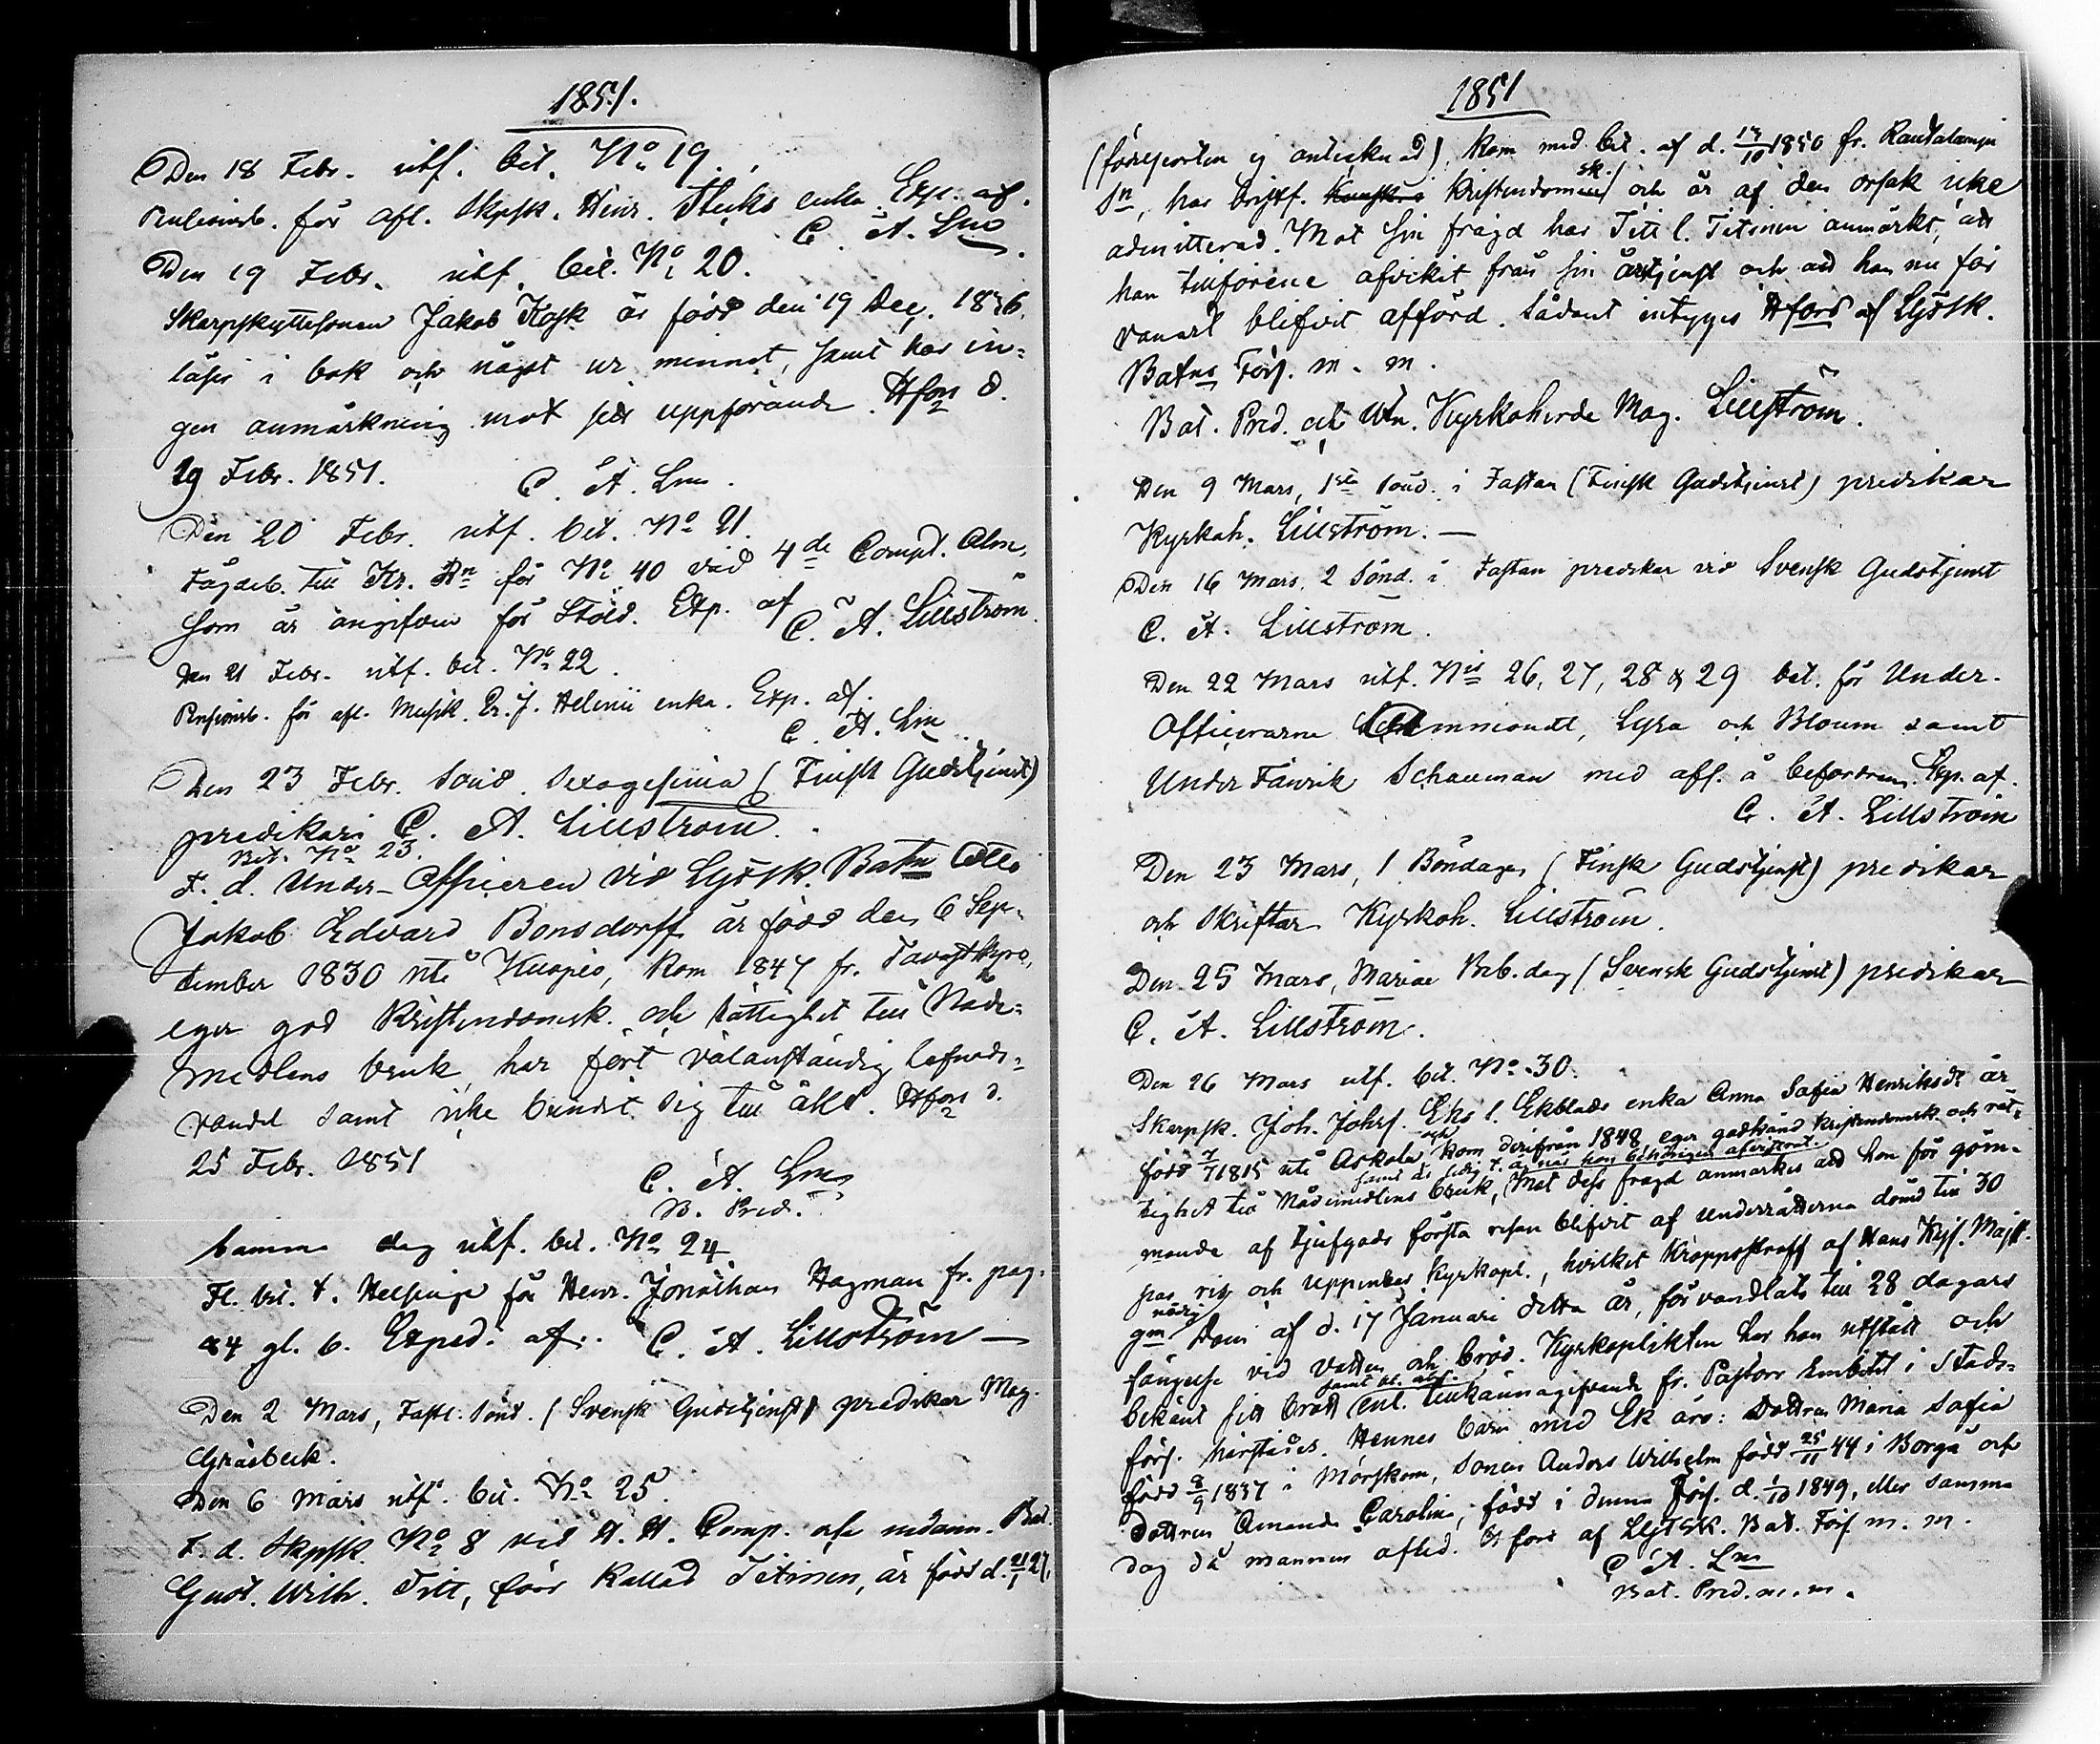 1851.
Den 18 Febr. utf. bet. No 19.
för afl. Skpsk. Henr. enka. Exp. af.
C. A. Lm
Den 19 Febr. utf. bet. No 20.
Skarpskyttesonen Jakob Kask är född den 19 Dec. 1836,
läser i bok och något ur minnet, samt har in-
gen anmärkning mot sitt uppförande. Hfors d.
19 Febr. 1851.
C. A. Lm.
Den 20 Febr. utf. bet. No 21.
till Kr. Rn för No 40 vid 4de Comp.
som är angifven för Stöld. Exp. af
C. A. Lillström.
Den 21 Febr. utf. bet. No 22.
för afl. Musik. Er. J. Helenii enka. Exp. af.
C. A. Lm
Den 23 Febr. Sönd. Sexagesima (Finsk Gudstjenst)
predikar C. A. Lillström.
Bet. No 23.
F. d. Under-Officeren vid LgFSk. Batn Otto
Jakob Edvard Bonsdorff är född den 6 Sep-
tember 1830 uti Kuopio, kom 1847 fr.
eger god Kristendomsk. och rättighet till Nåde-
medlens bruk, har fört välanständig lefnads-
vandel samt icke bundit sig till äkt. Hfors d.
25 Febr. 1851
C. A. Lm
B. Pred.
Samma dag utf. bet. No 24
Fl. bet. t. Helsinge för Henr. Jonathan Hagman fr. pag.
84 gl. b. Exped. af. C. A. Lillström
Den 2 Mars, Fastl. Sönd. (Svensk Gudstjenst) predikar Mag.
Gråsbeck.
Den 6 Mars utf. bet. No 25.
F. d. Skpsk. No 8 vid Comp. af Bat.
Gust. Wilh. Titt, förr kallad Titinen, är född d. 21/1 27,
1851
(födelseorten ej antecknad), kom med bet. af d. 13/10 1850 fr. Rautalampi
Sn, har bristf. Kristendomsk. och är af den orsak icke
admitterad. Mot sin frägd har Titt l. Titinen anmärkt, att
han tillförene afvikit från sin årstjenst och att han nu för
vanart blifvit afförd. Sådant intygas Hfors af LgFSk.
Batns Förs. m. m.
Bat. Pred. och Utn. Kyrkoherde Mag. Lillström.
Den 9 Mars, 1sta Sönd. i Fastan (Finsk Gudstjenst) predikar
Kyrkoh. Lillström. —
Den 16 Mars, 2 Sönd. i Fastan predikar vid Svensk Gudstjenst
C. A. Lillström.
Den 22 Mars utf. Nis 26, 27, 28 & 29 bet. för Under-
Officerarne Lyra och Bloum samt
Under Fänrik Schauman med afs. å befordran. Exp. af.
C. A. Lillström
Den 23 Mars, 1 Böndagen (Finsk Gudstjenst) predikar
och skriftar Kyrkoh. Lillström.
Den 25 Mars, Mariæ Beb. dag (Svensk Gudstjenst) predikar
C. A. Lillström.
Den 26 Mars utf. bet. No 30.
Skarpsk. Joh. Johss. Eks l. Ekblads enka Anna Sofia Henriksdr är
född 7/7 1815 uti Askola och kom derifrån 1848, eger godkänd kristendomsk. och rät-
samt är ledig t. äg. när hon behörigen afvittrat.
tighet till Nådemedlens bruk, Mot dess frägd anmärkes att hon för göm-
mande af tjufgods första resan blifvit af underrätterne dömd till 30
par ris och uppenbar Kyrkopl., hvilket kroppsstraff af Hans Kejs. Majst.
gm nådig dom af d. 17 Januari detta år, förvandlats till 28 dagars
fängelse vid vatten och bröd. Kyrkoplikten har hon utstått och
bekänt sitt brott samt bl. abs. enl. tillkännagifvande fr. Pastors Embetet i Stads-
förs. härstädes. Hennes barn med Ek äro: Dottren Maria Sofia
född 8/9 1837 i Mörskom, sonen Anders Wilhelm född 25/11 44 i Borgå och
Dottren Amanda Carolina, född i denna förs. d. 1/10 1849, eller samma
dag då mannen afled. Hfors af LgFSK. Bat. Förs. m. m.
C. A. Lm
Bat. Pred. m. m.